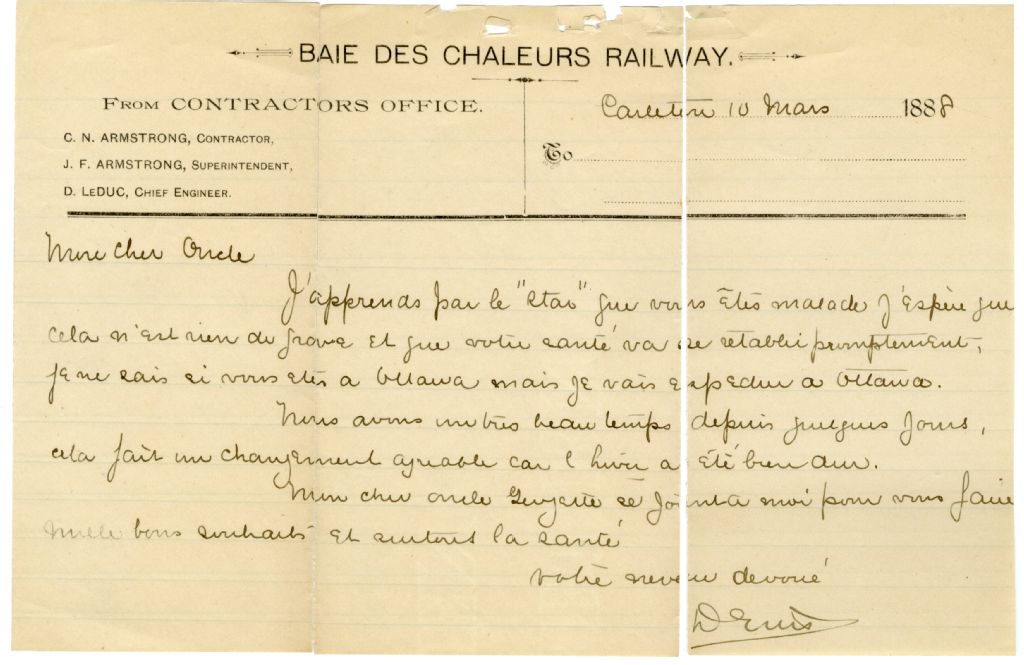 BAIE DES CHALEURS RAILWAY.
FROM CONTRACTORS OFFICE.
Carleton 10 Mars 1888
C. N. ARMSTRONG, CONTRACTOR,
J. F. ARMSTRONG, SUPERINTENDENT,
D. LEDUC, CHIEF ENGINEER.
To
Mon cher Oncle
J'apprends par le "Star" que vous êtes malade J'espère que
cela n'est rien de grave et que votre santé va se rétablir promptement,
Je ne sais si vous etes a Ottawa mais je vais expedier a Ottawa.
Nous avons un très beau temps depuis quelques jours,
cela fait un changement agreable car l hiver a été bien dur.
Mon cher oncle se joint a moi pour vous faire
mille bons souhaits et surtout la santé
votre neveu devoué
Denis